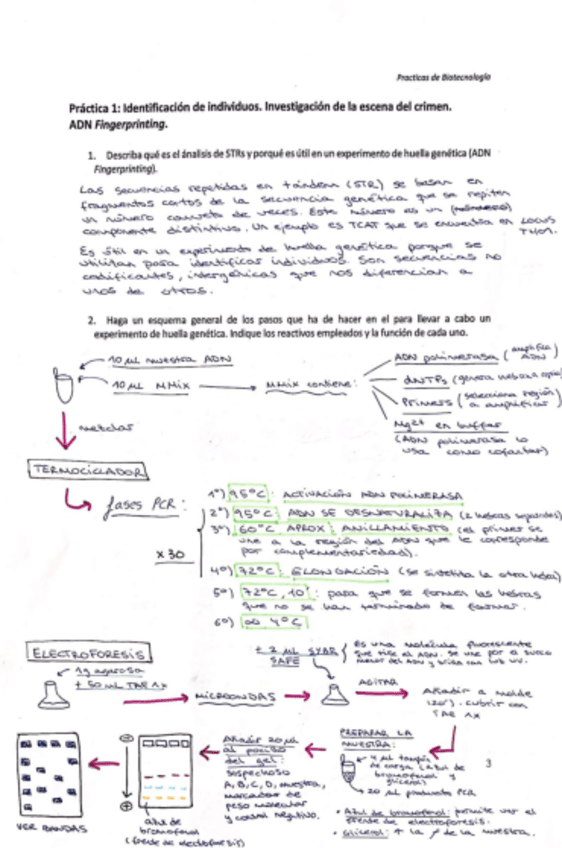 Practicas de Biotecnología
Práctica 1: Identificación de individuos. Investigación de la escena del crimen.
ADN Fingerprinting.
1. Describa qué es el ánalisis de STRs y porqué es útil en un experimento de huella genética (ADN
Fingerprinting).
Las secuencias repetidas en tándem (STR) se basan en
fragmentos cortos de la secuencia genética que se repiten
un número concreto de veces. Este número es un
componente distintivo. Un ejemplo es TCAT que se encuentra en LOCUS
TH01.
Es útil en un experimento de huella genética porque se
utilizan para identificar individuos. Son secuencias no
codificantes, intergénicas que nos diferencian a
unos de otros.
2. Haga un esquema general de los pasos que ha de hacer en el para llevar a cabo un
experimento de huella genética. Indique los reactivos empleados y la función de cada uno.
10 µL muestra ADN
10 µL MMix
MMix contiene:
ADN polimerasa (amplifica ADN)
dNTPs (genera hebras copia)
Primers (selecciona región a amplificar)
Mg2+ en buffer
(ADN polimerasa lo
usa como cofactor)
mezclar
TERMOCICLADOR
fases PCR:
x30
1º) 95ºC: ACTIVACIÓN ADN POLIMERASA
2º) 95ºC: ADN SE DESNATURALIZA (2 hebras separadas)
3º) 60ºC APROX: ANILLAMIENTO (el primer se
une a la región del ADN que le corresponde
por complementariedad).
4º) 72ºC: ELONGACIÓN (se sintetiza la otra hebra)
5º) 72ºC, 10': para que se formen las hebras
que no se han terminado de formar.
6º) ∞ 4ºC
ELECTROFORESIS
1g agarosa
+ 50 mL TAE 1x
MICROONDAS
+ 2 µL SYBR
SAFE
Es una molécula fluorescente
que tiñe el ADN. Se une por el surco
menor del ADN y brilla con luz UV.
AGITAR
Añadir a molde
(20'). Cubrir con
TAE 1x
PREPARAR LA
MUESTRA:
4 µL tampón
de carga (azul de
bromofenol y
glicerol)
20 µL producto PCR
3
• Azul de bromofenol: permite ver el
frente de electroforesis.
• Glicerol: ↑ la ρ de la muestra.
Añadir 20 µl
al pocillo
del gel:
sospechoso
A, B, C, D, muestra,
marcador de
peso molecular
y control negativo.
azul de
bromofenol
(frente de electroforesis)
VER BANDAS